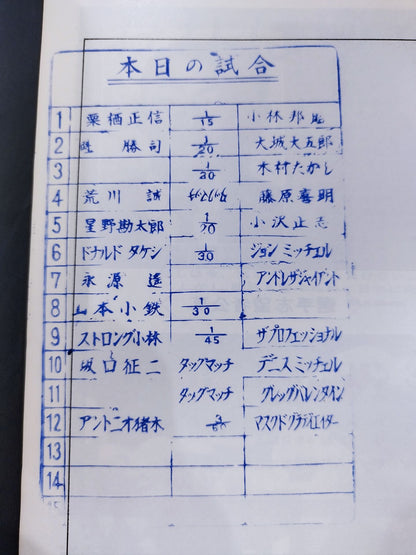 本日の試合
1 栗栖正信 1/15 小林邦昭
2 勝司 1/20 大城大五郎
3 1/20 木村たかし
4 荒川 誠 藤原喜明
5 星野勘太郎 1/20 小沢正志
6 ドナルド タケシ 1/30 ジョン ミッチェル
7 永源 遙 アンドレザジャイアント
8 山本小鉄 1/30
9 ストロング小林 1/45 ザプロフェッショナル
10 坂口征二 タッグマッチ デニスミッチェル
11 タッグマッチ グレッグバレンタイン
12 アントニオ猪木 マスクドグラジエイター
13
14